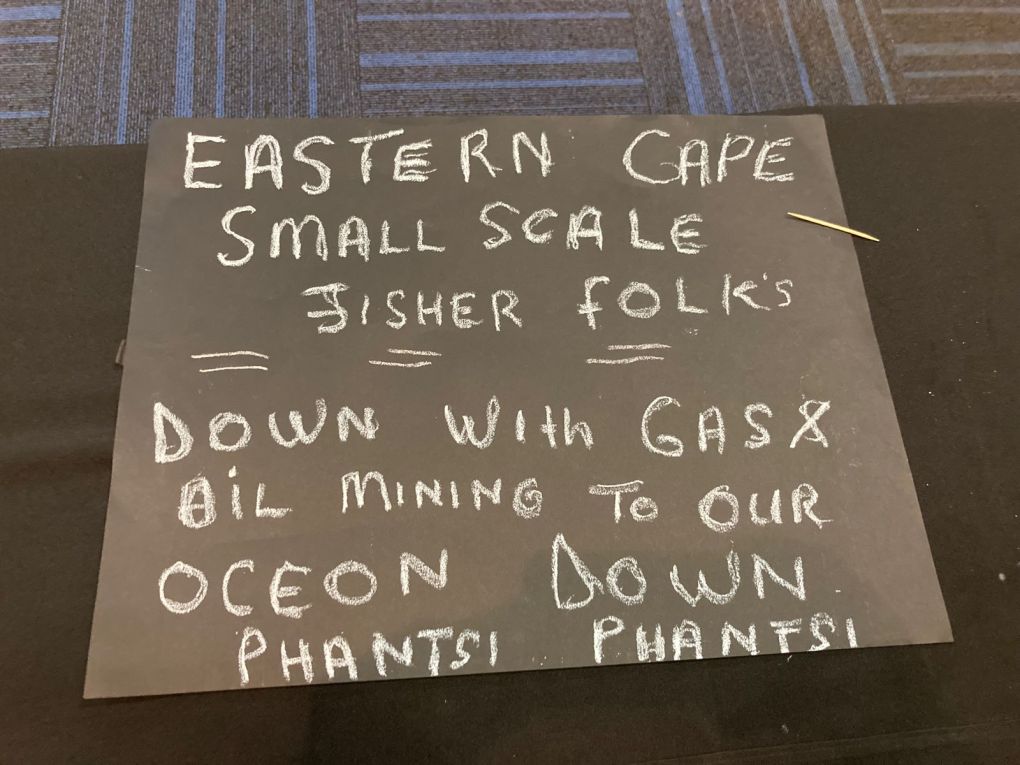 EASTERN CAPE
SMALL SCALE
FISHER FOLK'S
DOWN With GAS &
OIL MINING TO OUR
OCEON DOWN
PHANTSI PHANTSI